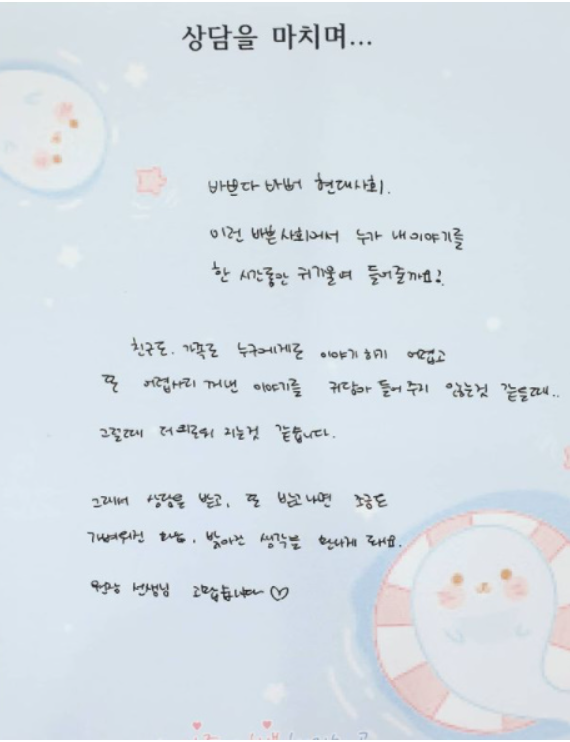 상담을 마치며...
바쁘다 바뻐 현대사회.
이런 바쁜 사회에서 누가 내 이야기를
한 시간동안 귀기울여 들어줄까요?
친구도. 가족도 누구에게도 이야기 하기 어렵고
또 어렵사리 꺼낸 이야기를 귀담아 들어 주지 않는것 같을때..
그럴때 더 외로워 지는것 같습니다.
그래서 상담을 받고, 또 받고나면 조금은
가벼워진 마음, 밝아진 생각을 만나게 돼요.
선생님 고맙습니다 ♡